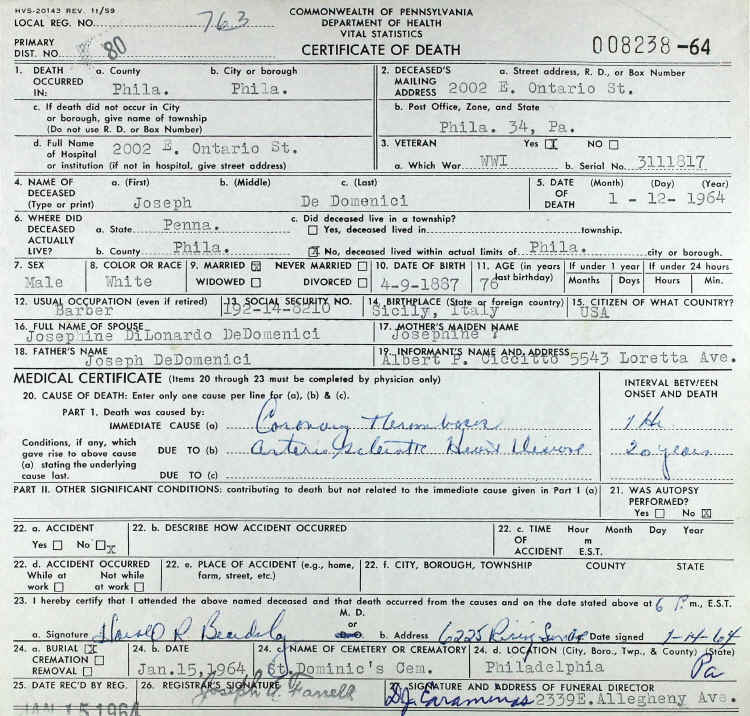 HVS-20143 REV. 11/59
COMMONWEALTH OF PENNSYLVANIA
LOCAL REG. NO. 763
DEPARTMENT OF HEALTH
VITAL STATISTICS
PRIMARY DIST. NO. 80
CERTIFICATE OF DEATH
008238-64
1. DEATH OCCURRED IN: a. County Phila. b. City or borough Phila.
c. If death did not occur in City
or borough, give name of township
(Do not use R. D. or Box Number)
d. Full Name of Hospital 2002 E. Ontario St.
or institution (if not in hospital, give street address)
2. DECEASED'S MAILING ADDRESS a. Street address, R. D., or Box Number
2002 E. Ontario St.
b. Post Office, Zone, and State
Phila. 34, Pa.
3. VETERAN Yes X NO
a. Which War WWI b. Serial No. 3111817
4. NAME OF DECEASED (Type or print) a. (First) b. (Middle) c. (Last)
Joseph De Domenici
5. DATE OF DEATH (Month) (Day) (Year)
1 - 12 - 1964
6. WHERE DID DECEASED ACTUALLY LIVE? a. State Penna.
b. County Phila.
c. Did deceased live in a township?
Yes, deceased lived in township.
X No, deceased lived within actual limits of Phila. city or borough.
7. SEX Male
8. COLOR OR RACE White
9. MARRIED X NEVER MARRIED
WIDOWED DIVORCED
10. DATE OF BIRTH 4-9-1887
11. AGE (in years last birthday) 76
If under 1 year Months Days
If under 24 hours Hours Min.
12. USUAL OCCUPATION (even if retired) Barber
13. SOCIAL SECURITY NO. 192-14-8210
14. BIRTHPLACE (State or foreign country) Sicily, Italy
15. CITIZEN OF WHAT COUNTRY? USA
16. FULL NAME OF SPOUSE Josephine DiLonardo DeDomenici
17. MOTHER'S MAIDEN NAME Josephine ?
18. FATHER'S NAME Joseph DeDomenici
19. INFORMANT'S NAME AND ADDRESS Albert P. Ciccitto 5543 Loretta Ave.
MEDICAL CERTIFICATE (Items 20 through 23 must be completed by physician only)
INTERVAL BETWEEN ONSET AND DEATH
20. CAUSE OF DEATH: Enter only one cause per line for (a), (b) & (c).
PART 1. Death was caused by:
IMMEDIATE CAUSE (a) Coronary Thrombosis 1 Hr
Conditions, if any, which gave rise to above cause (a) stating the underlying cause last.
DUE TO (b) Arterio Sclerotic Heart Disease 20 years
DUE TO (c)
PART II. OTHER SIGNIFICANT CONDITIONS: contributing to death but not related to the immediate cause given in Part I (a)
21. WAS AUTOPSY PERFORMED?
Yes No X
22. a. ACCIDENT
Yes No X
22. b. DESCRIBE HOW ACCIDENT OCCURRED
22. c. TIME OF ACCIDENT Hour Month Day Year
m
E.S.T.
22. d. ACCIDENT OCCURRED
While at work Not while at work
22. e. PLACE OF ACCIDENT (e.g., home, farm, street, etc.)
22. f. CITY, BOROUGH, TOWNSHIP COUNTY STATE
23. I hereby certify that I attended the above named deceased and that death occurred from the causes and on the date stated above at 6 P.m., E.S.T.
M. D.
or
a. Signature Harold R. b. Address 6225 Rising Sun Ave Date signed 1-14-64
24. a. BURIAL X
CREMATION
REMOVAL
24. b. DATE Jan.15,1964
24. c. NAME OF CEMETERY OR CREMATORY St. Dominic's Cem.
24. d. LOCATION (City, Boro., Twp., & County) (State)
Philadelphia Pa
25. DATE REC'D BY REG. JAN 15 1964
26. REGISTRAR'S SIGNATURE Joseph A. Farrell
27. SIGNATURE AND ADDRESS OF FUNERAL DIRECTOR
2339E.Allegheny Ave.